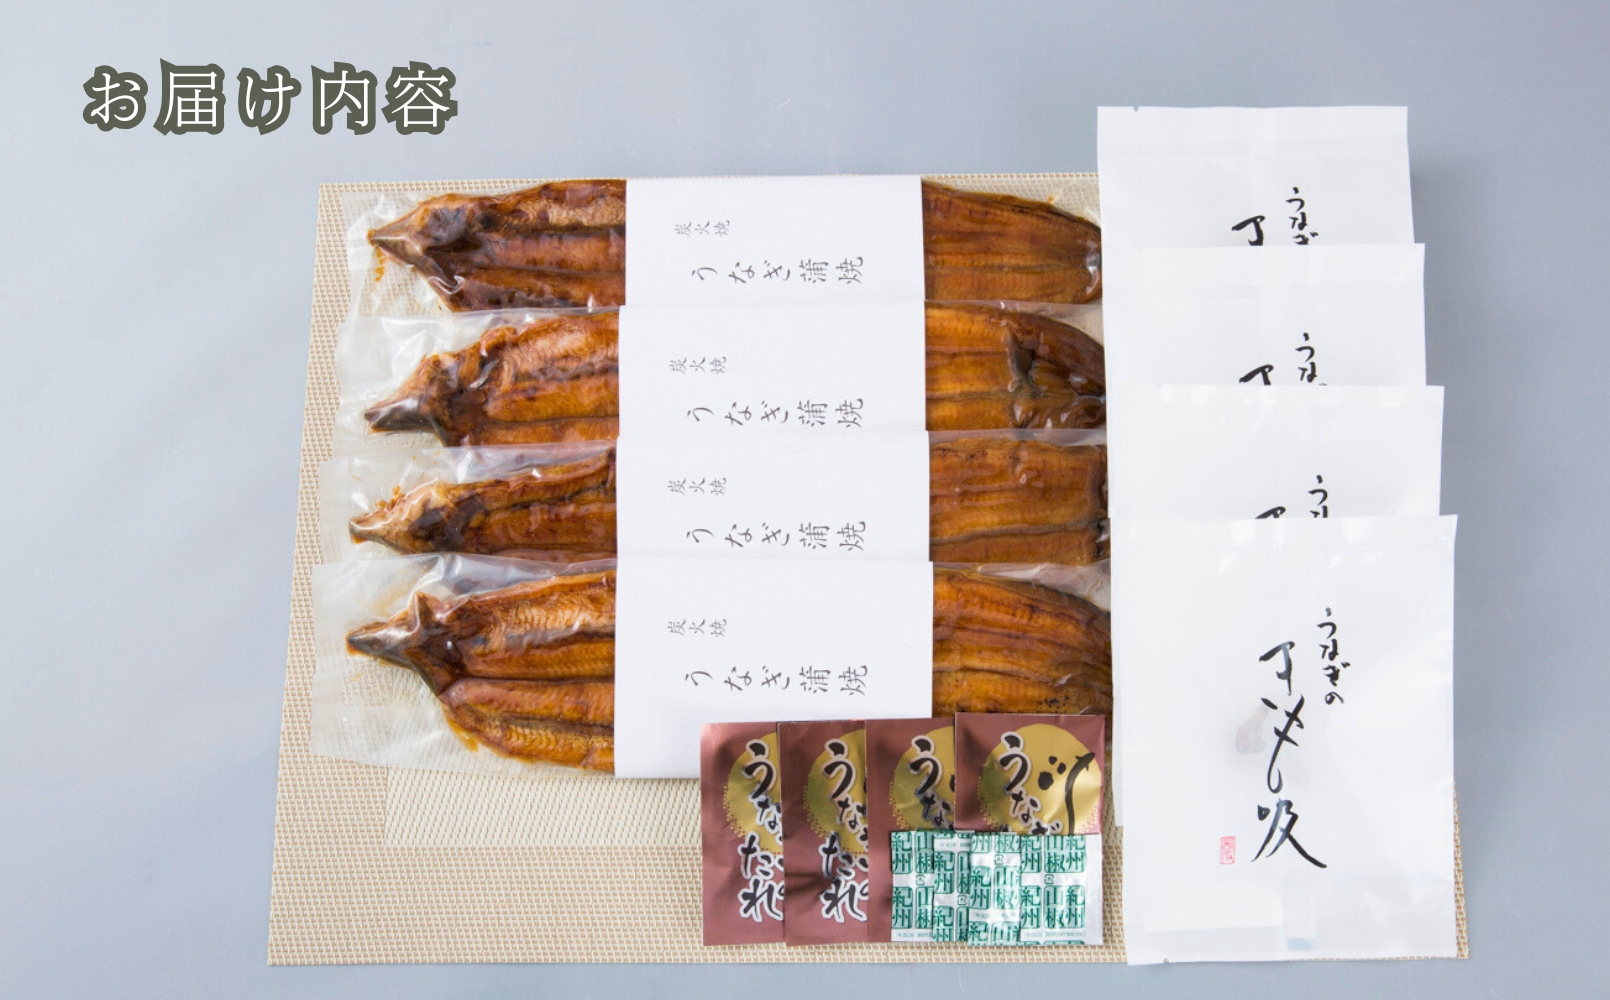 お届け内容
炭火焼
うなぎ蒲焼
炭火焼
うなぎ蒲焼
炭火焼
うなぎ蒲焼
炭火焼
うなぎ蒲焼
うなぎ
うな
う
うなぎの
きも吸
うな
たれ
うな
たれ
うな
うなぎ
紀州
山椒
紀州
山椒
紀州
山椒